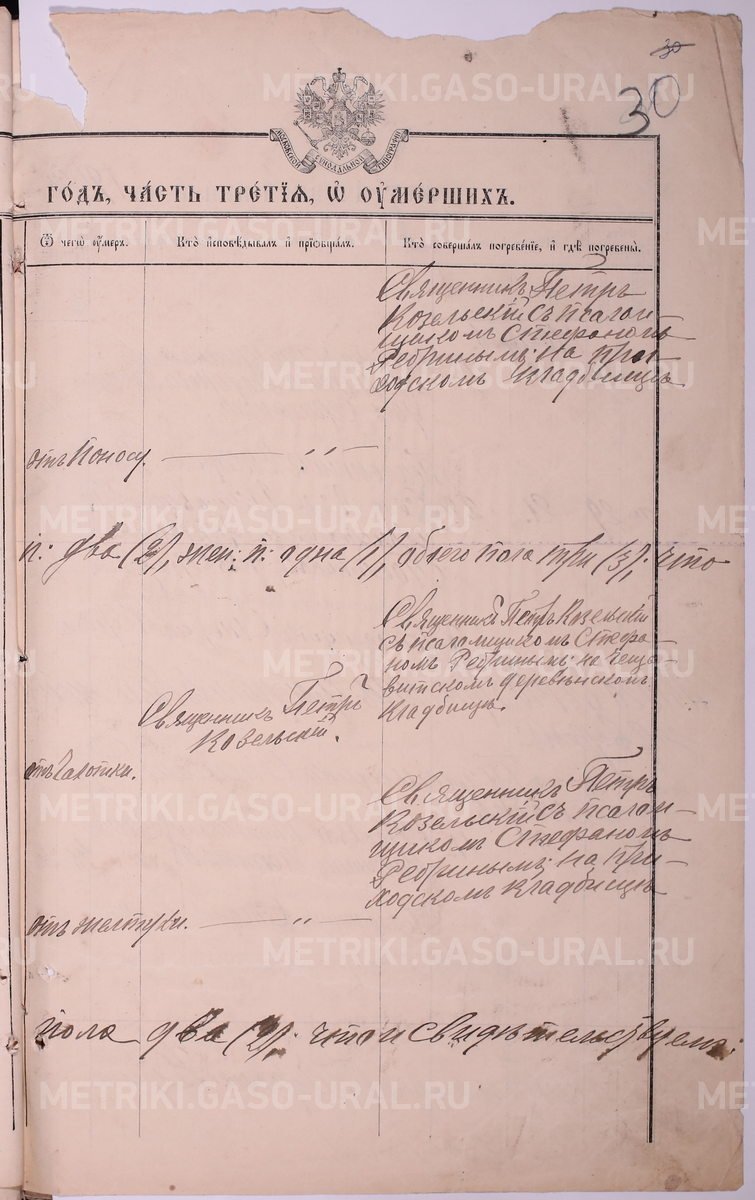 30
30
МОСКОВСКОЙ СѴНОДАЛЬНОЙ ТИПОГРАФІИ
ГО́ДЪ, ЧА́СТЬ ТРЕ́ТІѦ, Ѡ҆ ОУ҆МЕ́РШИХЪ.
Ѿ чегѡ̀ ᲂу҆́меръ. Кто̀ и҆сповѣ́дывалъ и҆ приѻбща́лъ. Кто̀ соверша́лъ погребе́нїе, и҆ гдѣ̀ погребены̀.
Священникъ Петръ
Козельскій съ псалом-
щикомъ Стефаномъ
Ребринымъ; на при-
ходскомъ кладбищѣ
отъ поносу. — „ —
п: два (2), жен: п: одна (1), обоего пола три (3); что
Священникъ Петръ Козельскій
съ псаломщикомъ Стефа-
номъ Ребринымъ; на
витскомъ деревенскомъ
кладбищѣ.
Священникъ Петръ
Козельскій.
отъ чахотки.
Священникъ Петръ
Козельскій съ псалом-
щикомъ Стефаномъ
Ребринымъ; на при-
ходскомъ кладбищѣ
отъ желтухи. — „ —
пола два (2). что и свидѣтельствуемъ:
METRIKI.GASO-URAL.RU